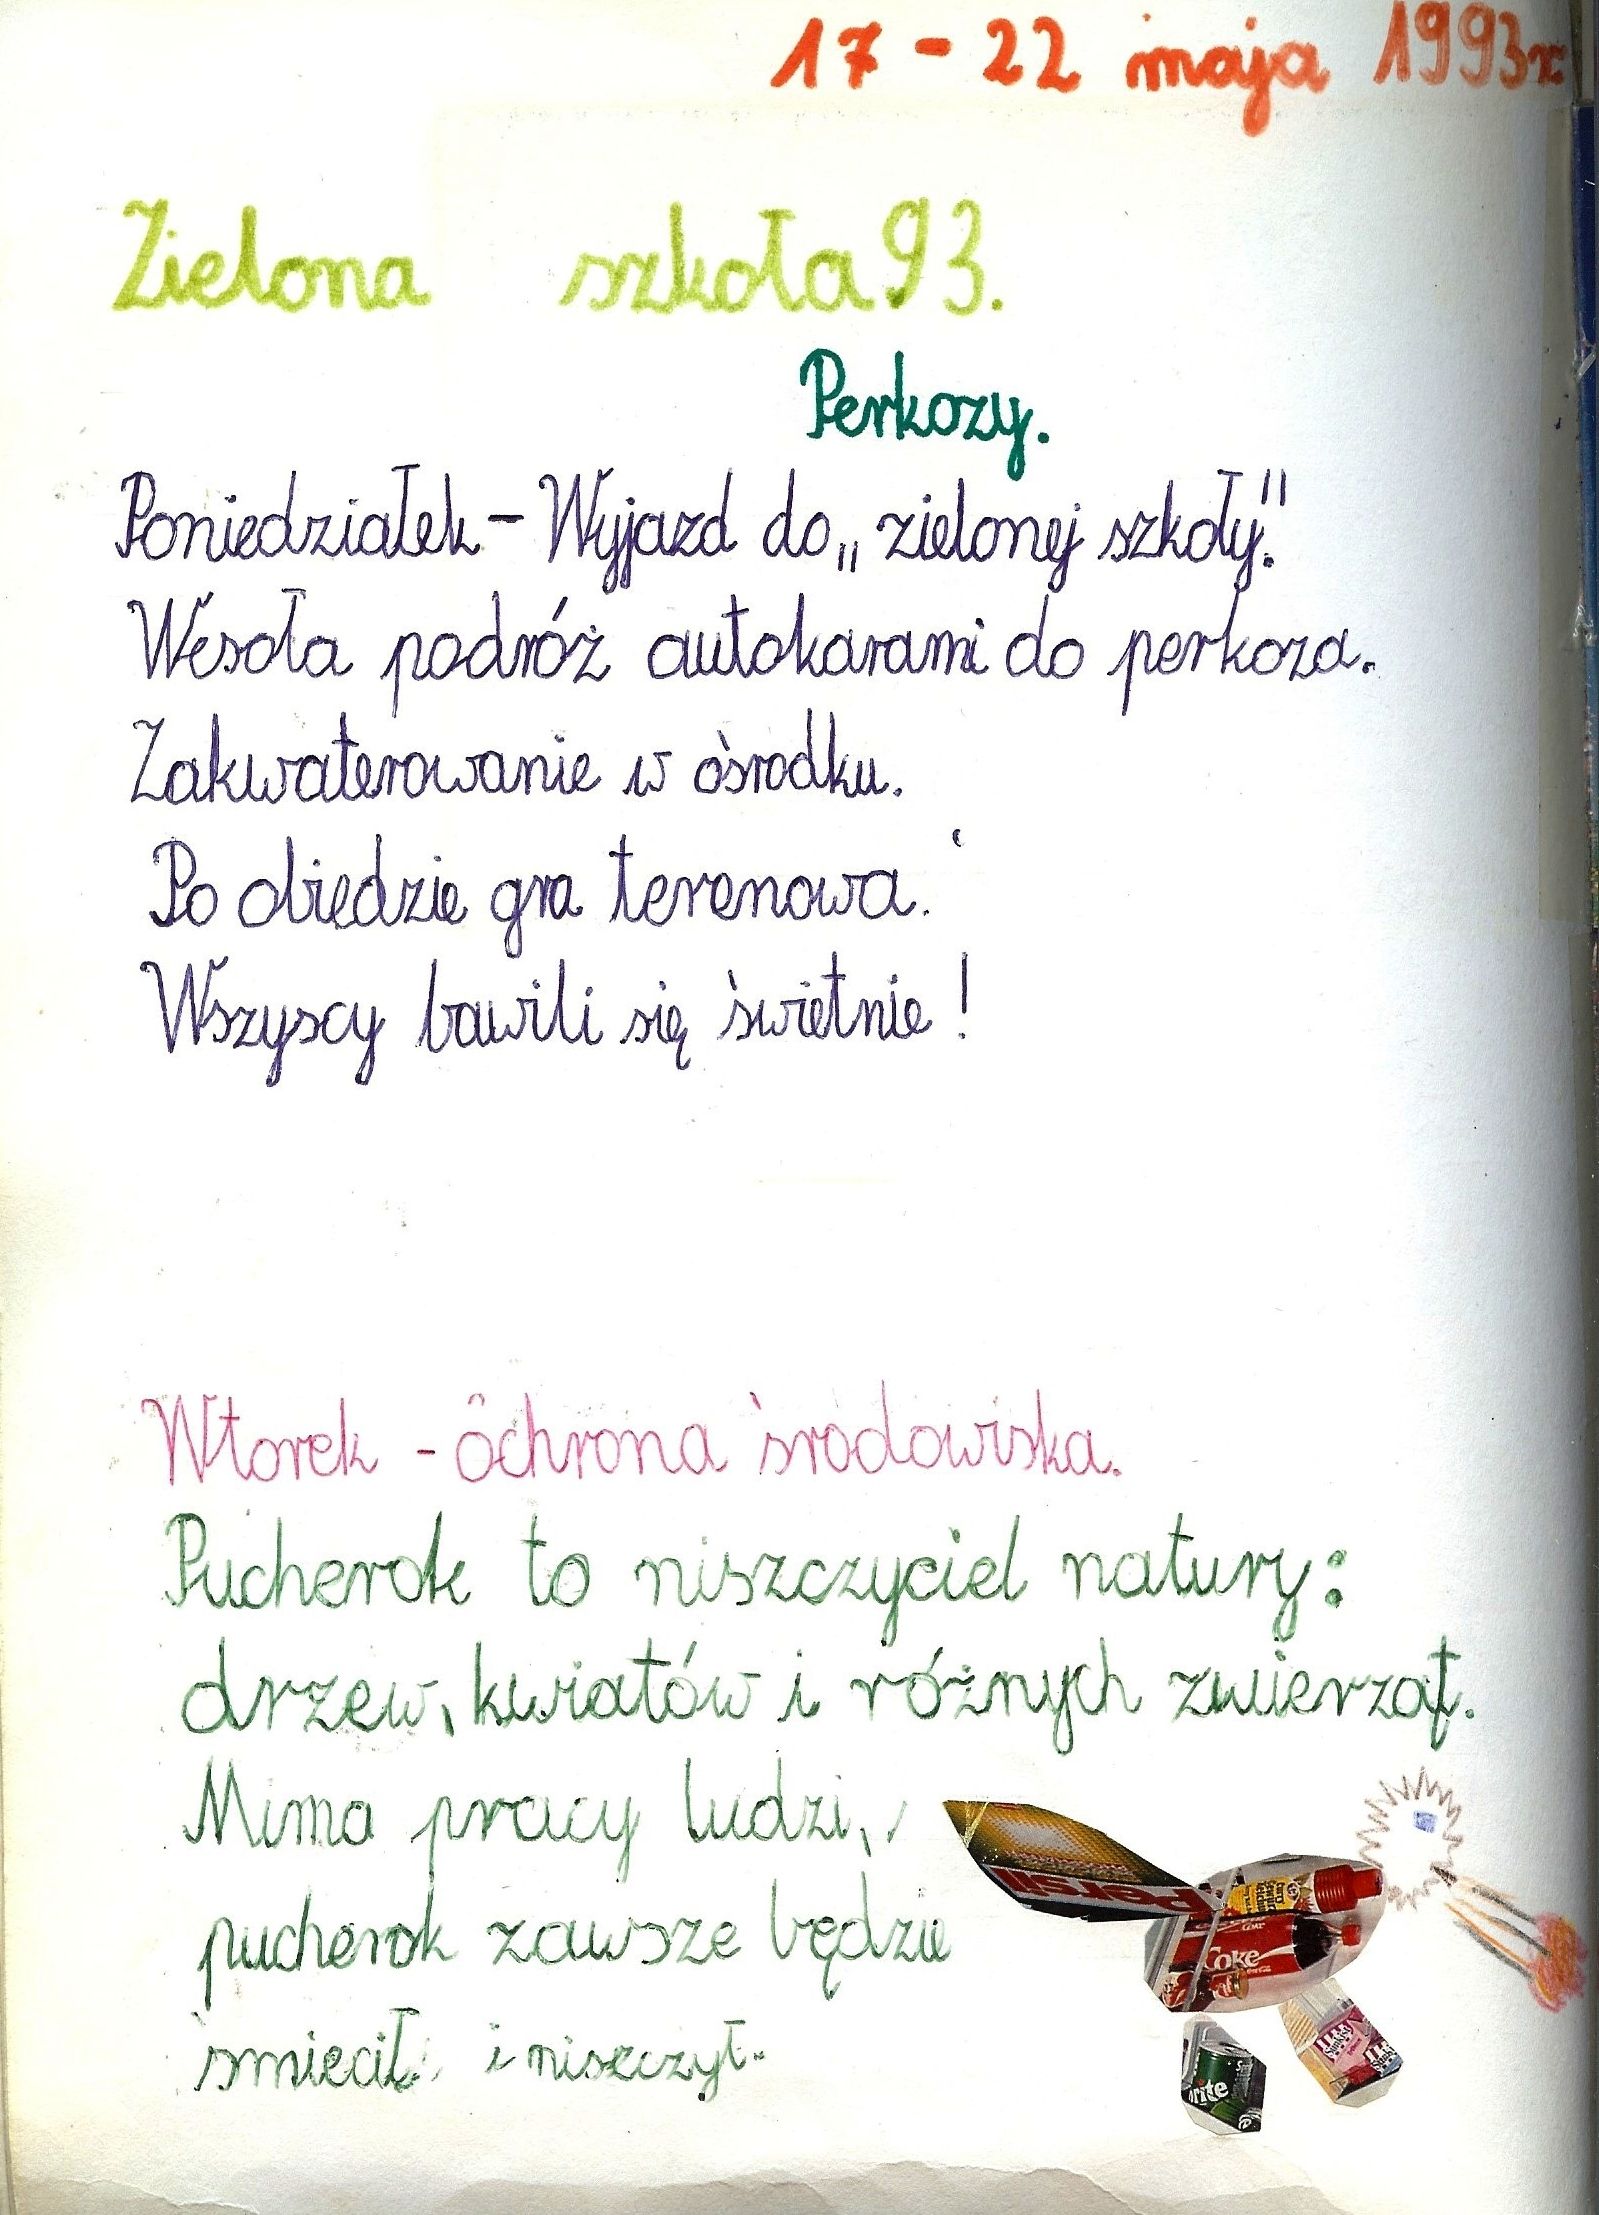 17 - 22 maja 1993r
Zielona szkoła 93.
Perkozy.
Poniedziałek - Wyjazd do „zielonej szkoły."
Wesoła podróż autokarami do perkoza.
Zakwaterowanie w ośrodku.
Po obiedzie gra terenowa.
Wszyscy bawili się świetnie!
Wtorek - ochrona środowiska.
Pucherok to niszczyciel natury:
drzew, kwiatów i różnych zwierząt.
Mima pracy ludzi,
pucherok zawsze będzie
śmiecił i niszczył.
Persil
Coke
rite